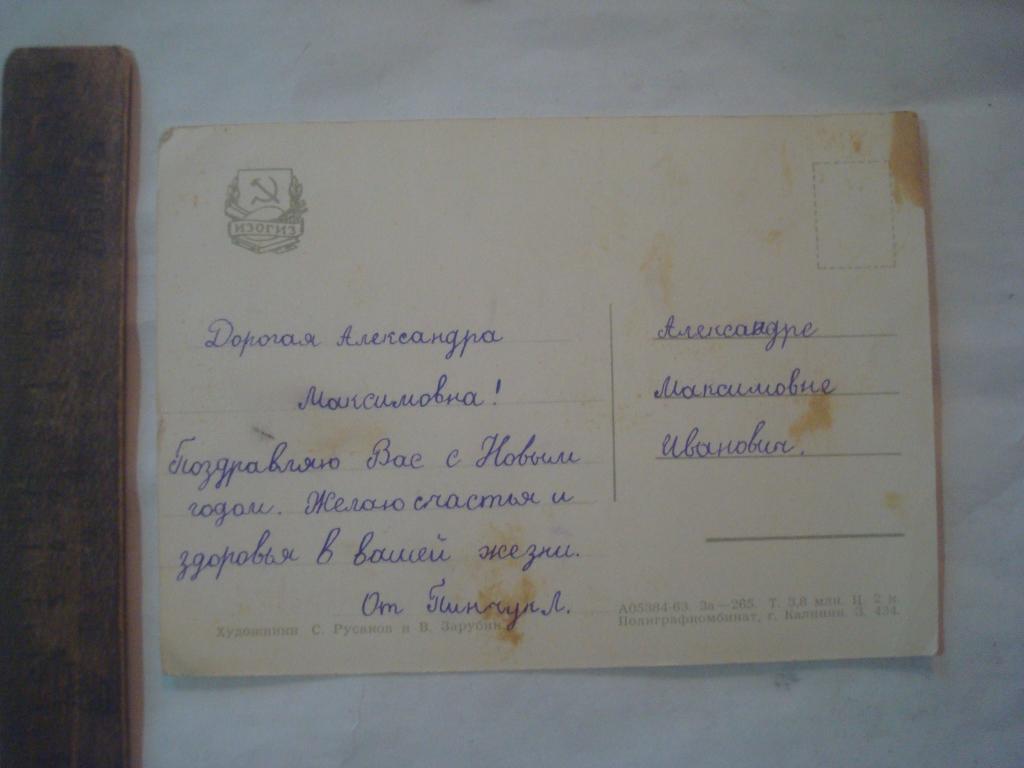 ИЗОГИЗ
Дорогая Александра
Максимовна!
Поздравляю Вас с Новым
годом. Желаю счастья и
здоровья в вашей жезни.
От Пинчук Л.
Художники С. Русанов и В. Зарубин
Александре
Максимовне
Иванович.
А05384-63. За—265. Т. 3,8 млн. Ц 2 к.
Полиграфкомбинат, г. Калинин. З. 434.